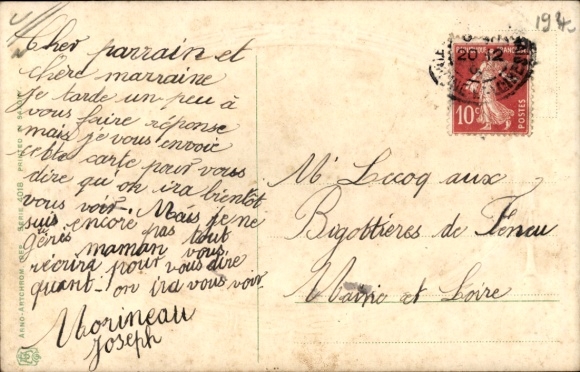 Cher parrain et
chère marraine
je tarde un peu à
vous faire réponse
mais je vous envoie
cette carte pour vous
dire qu'on ira bientot
vous voir. Mais je ne
suis encore
pas tout
maman vous
récrira pour vous dire
quant on ira vous voir
Morineau
Joseph
194
20 12
10c
POSTES
Mr Lecoq aux
Bigottières de Feneu
Maine et Loire
SERIE 4018 PRINTED IN SAXONY